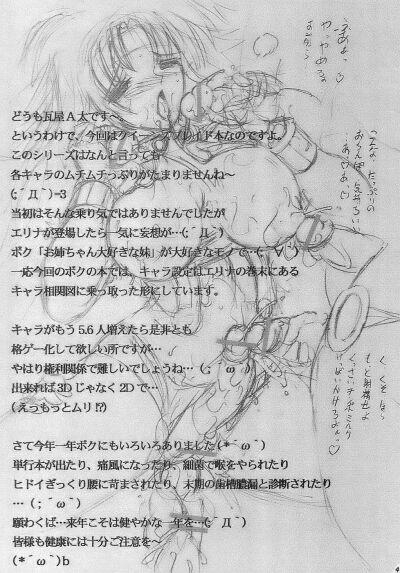 どうも瓦屋A太です〜。
というわけで、今回はクイーンズブレイド本なのですよ。
このシリーズはなんと言っても
各キャラのムチムチっぷりがたまりませんね〜
(;´Д｀)=3
当初はそんな乗り気ではありませんでしたが
エリナが登場したら一気に妄想が…(;´Д｀)
ボク「お姉ちゃん大好きな妹」が大好きなモノで…(;´∀｀)
一応今回のボクの本では、キャラ設定はエリナの巻末にある
キャラ相関図に乗っ取った形にしています。
キャラがもう5.6人増えたら是非とも
格ゲー化して欲しい所ですが…
やはり権利関係で難しいでしょうね…（；´ω｀）
出来れば3Dじゃなく2Dで…
（えっもっとムリ!?）
さて今年一年ボクにもいろいろありました(*´ω｀)
単行本が出たり、痛風になったり、細菌で喉をやられたり
ヒドイぎっくり腰に苛まされたり、末期の歯槽膿漏と診断されたり
…（；´ω｀）
願わくば…来年こそは健やかな一年を…(;´Д｀)
皆様も健康には十分ご注意を〜
(*´ω｀)b